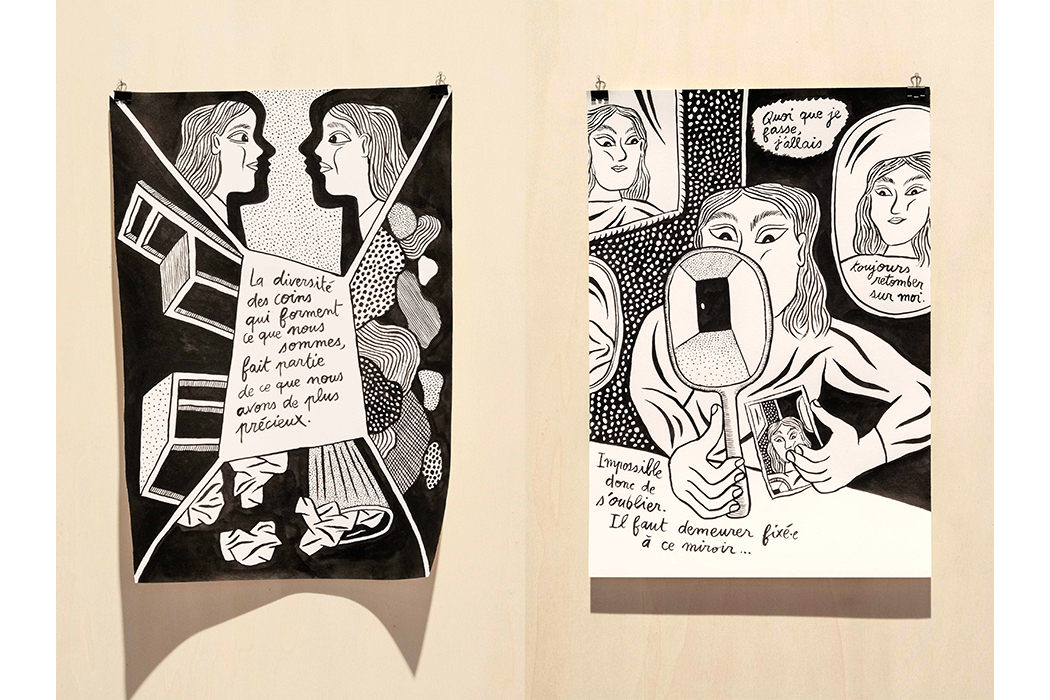 La diversité
des coins
qui forment
ce que nous
sommes,
fait partie
de ce que nous
avons de plus
précieux.
Quoi que je
fasse,
j'allais
toujours
retomber
sur moi.
Impossible
donc de
s'oublier.
Il faut demeurer fixé·e
à ce miroir...